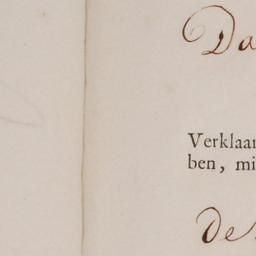 Da
Verklaar
ben, mi
de